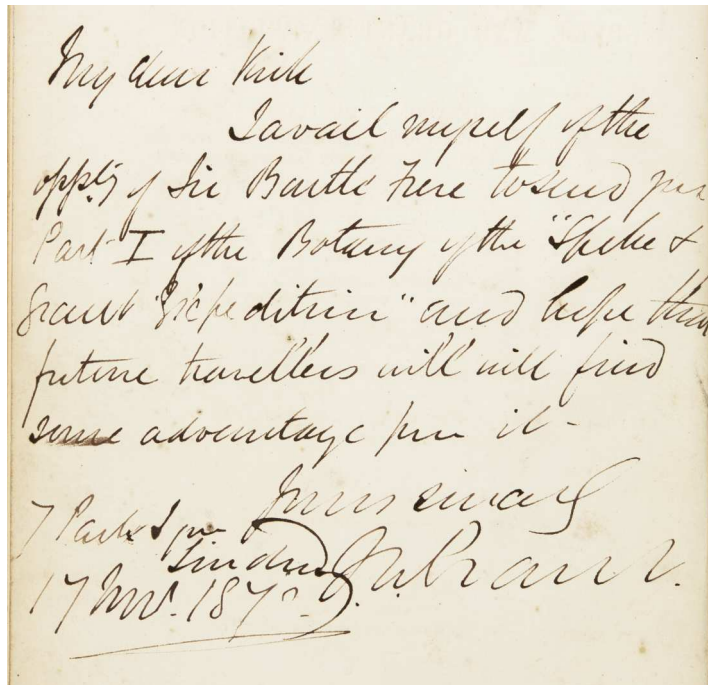 My dear Kirk
I avail myself of the
oppty of Sir Bartle Frere to send you
Part I of the Botany of the "Speke &
Grant Expedition" and hope that
future travellers will will find
some advantage from it -
Yours sincerely
7 Park Sqre
London J. A. Grant.
17 Novr. 1872.